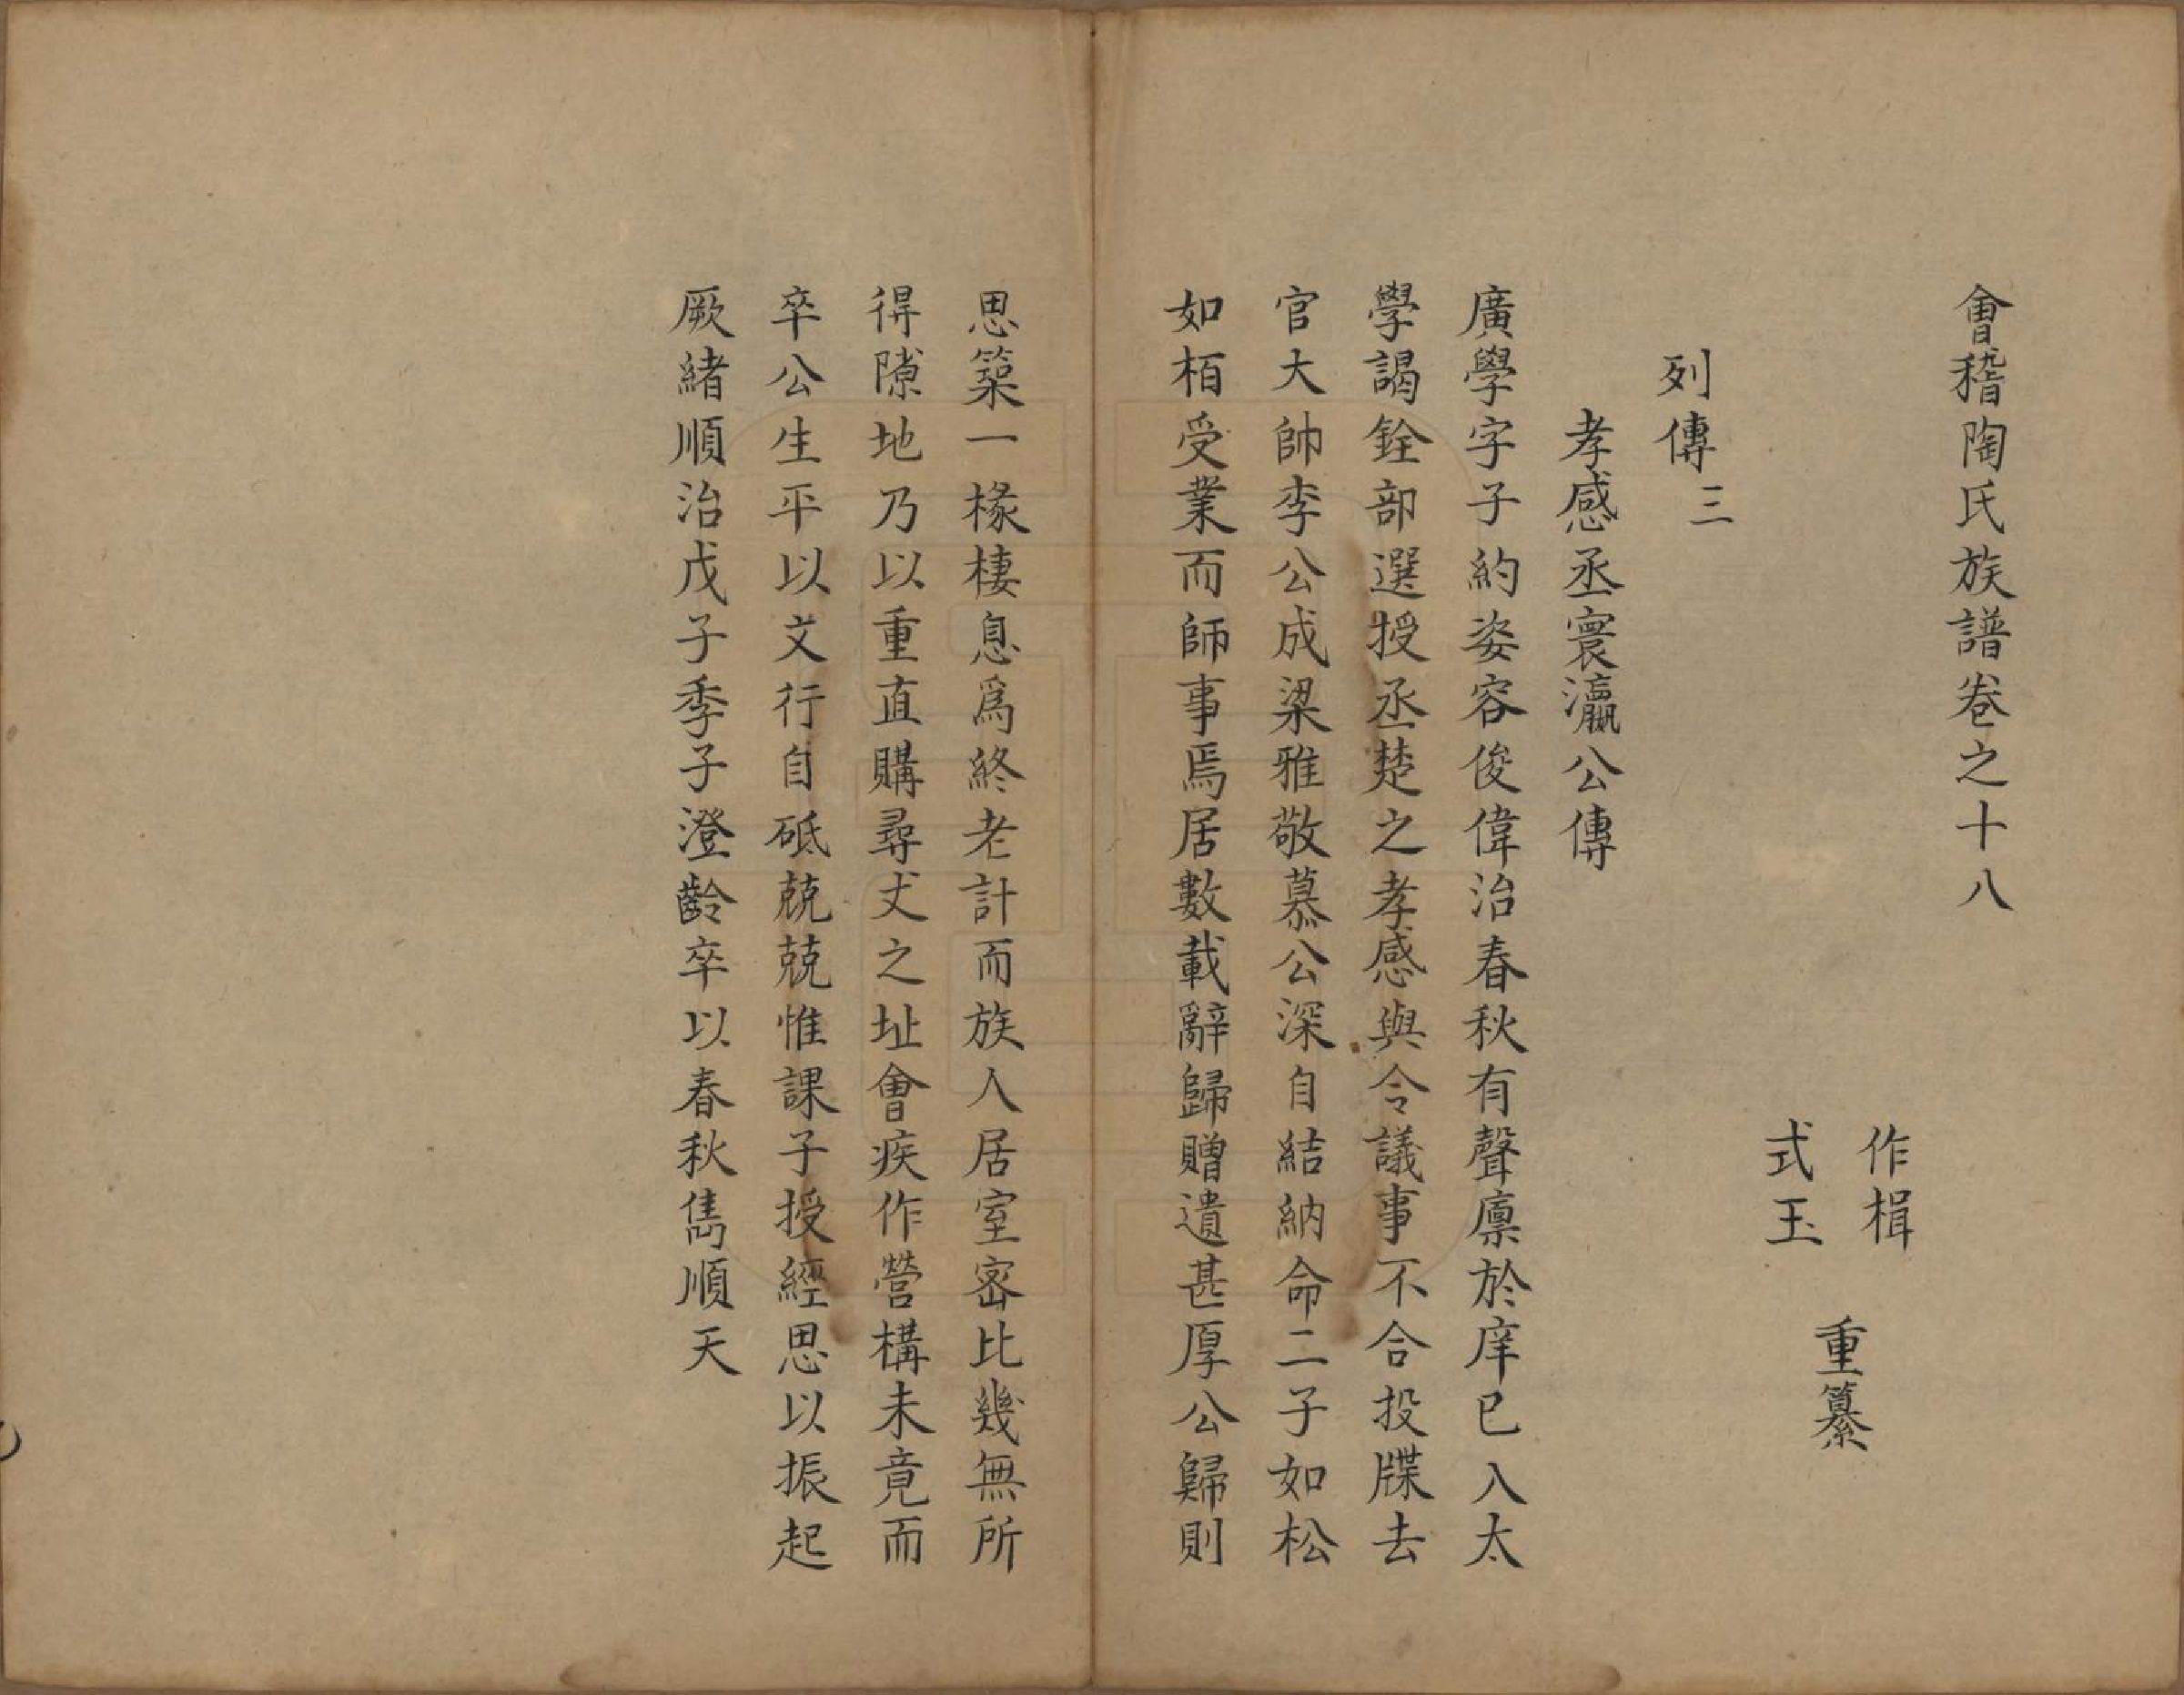 會稽陶氏族譜卷之十八
作楫
式玉
重纂
列傳三
孝感丞寰瀛公傳
廣學字子約姿容俊偉治春秋有聲廩於庠已入太
學謁銓部選授丞楚之孝感與令議事不合投牒去
官大帥李公成梁雅敬慕公深自結納命二子如松
如栢受業而師事焉居數載辭歸贈遺甚厚公歸則
思築一椽棲息爲終老計而族人居室密比幾無所
得隙地乃以重直購尋丈之址會疾作營構未竟而
卒公生平以文行自砥兢兢惟課子授經思以振起
厥緒順治戊子季子澄齡卒以春秋雋順天